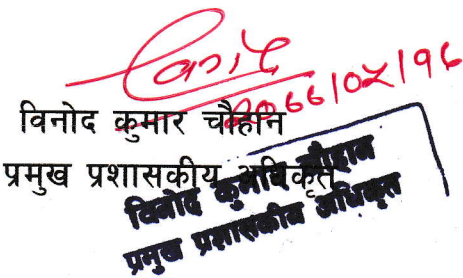 विनोद कुमार चौहान
प्रमुख प्रशासकीय अधिकृत
विनोद कुमार चौहान
प्रमुख प्रशासकीय अधिकृत